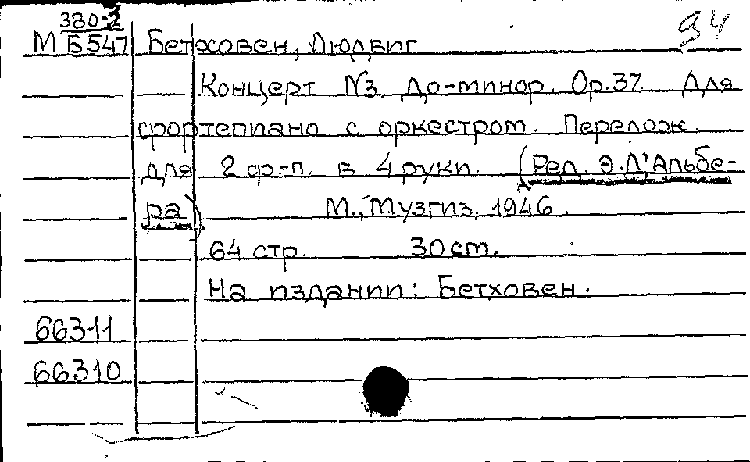 380-2
94
М Б547 Бетховен, Людвиг
Концерт №3. До-минор. Ор.37. Для
фортепиано с оркестром. Перелож.
для 2 ф-п. в 4 руки. (Ред. Э.Д'Альбе-
ра) М., Музгиз, 1946.
64 стр. 30 ст.
На издании: Бетховен.
66311
66310